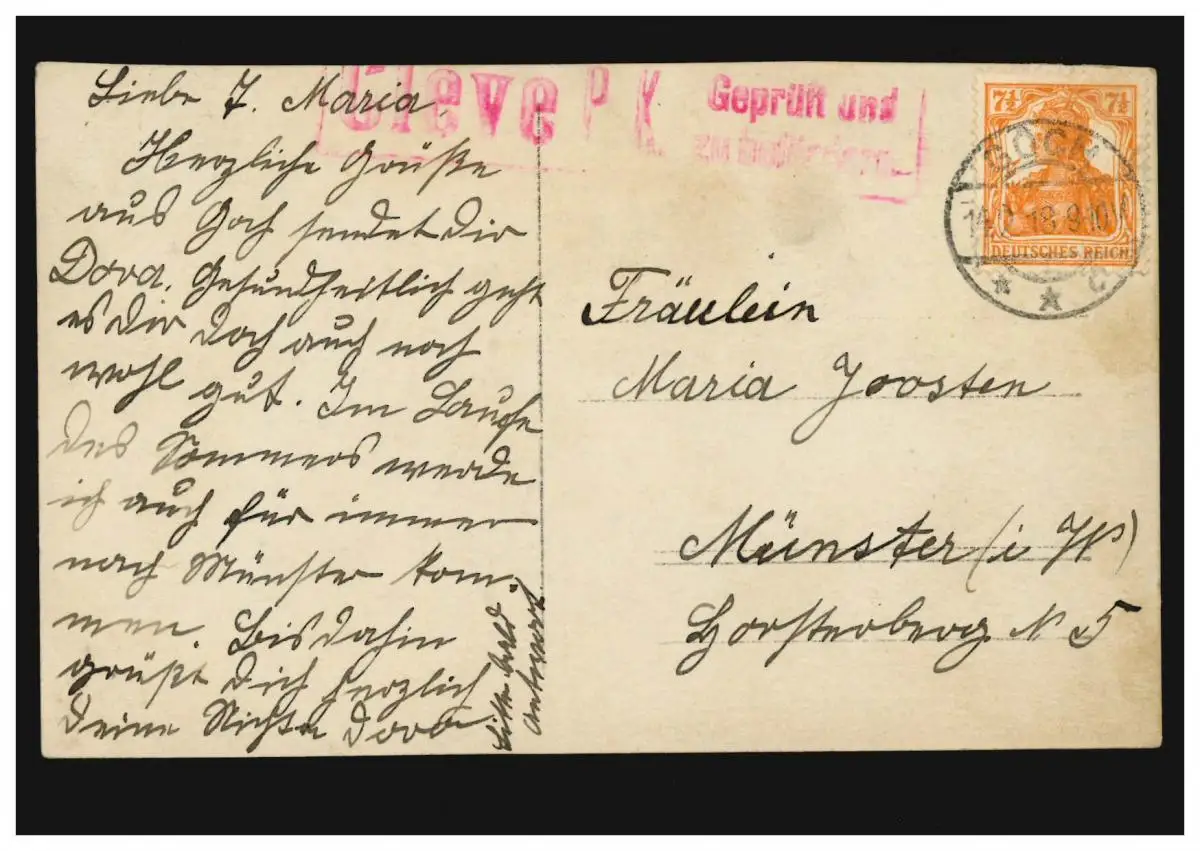 Liebe T. Maria,
Herzliche Grüße
aus Goch sendet dir
Dora. Gesundheitlich geht
es dir doch auch noch
wohl gut. Im Laufe
des Sommers werde
ich auch für immer
nach Münster kom-
men. Bis dahin
grüßt Dich herzlich
Deine Nichte Dora
Bitte bald
antwort
Cleve P K.
Geprüft und
zu
7½ 7½
DEUTSCHES REICH
GOCH
18 9-10
Fräulein
Maria Joosten
Münster (i W)
Horsterberg N 5